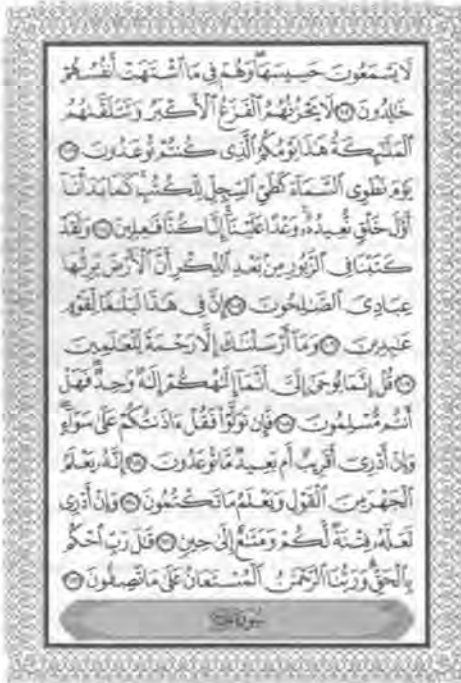 لَا يَسْمَعُونَ حَسِيسَهَا وَهُمْ فِي مَا اشْتَهَتْ أَنفُسُهُمْ
خَالِدُونَ ۝ لَا يَحْزُنُهُمُ الْفَزَعُ الْأَكْبَرُ وَتَتَلَقَّاهُمُ
الْمَلَائِكَةُ هَٰذَا يَوْمُكُمُ الَّذِي كُنتُمْ تُوعَدُونَ ۝
يَوْمَ نَطْوِي السَّمَاءَ كَطَيِّ السِّجِلِّ لِلْكُتُبِ كَمَا بَدَأْنَا
أَوَّلَ خَلْقٍ نُّعِيدُهُ وَعْدًا عَلَيْنَا إِنَّا كُنَّا فَاعِلِينَ ۝ وَلَقَدْ
كَتَبْنَا فِي الزَّبُورِ مِن بَعْدِ الذِّكْرِ أَنَّ الْأَرْضَ يَرِثُهَا
عِبَادِيَ الصَّالِحُونَ ۝ إِنَّ فِي هَٰذَا لَبَلَاغًا لِّقَوْمٍ
عَابِدِينَ ۝ وَمَا أَرْسَلْنَاكَ إِلَّا رَحْمَةً لِّلْعَالَمِينَ
۝ قُلْ إِنَّمَا يُوحَىٰ إِلَيَّ أَنَّمَا إِلَٰهُكُمْ إِلَٰهٌ وَاحِدٌ فَهَلْ
أَنتُم مُّسْلِمُونَ ۝ فَإِن تَوَلَّوْا فَقُلْ آذَنتُكُمْ عَلَىٰ سَوَاءٍ
وَإِنْ أَدْرِي أَقَرِيبٌ أَم بَعِيدٌ مَّا تُوعَدُونَ ۝ إِنَّهُ يَعْلَمُ
الْجَهْرَ مِنَ الْقَوْلِ وَيَعْلَمُ مَا تَكْتُمُونَ ۝ وَإِنْ أَدْرِي
لَعَلَّهُ فِتْنَةٌ لَّكُمْ وَمَتَاعٌ إِلَىٰ حِينٍ ۝ قَالَ رَبِّ احْكُم
بِالْحَقِّ وَرَبُّنَا الرَّحْمَٰنُ الْمُسْتَعَانُ عَلَىٰ مَا تَصِفُونَ ۝